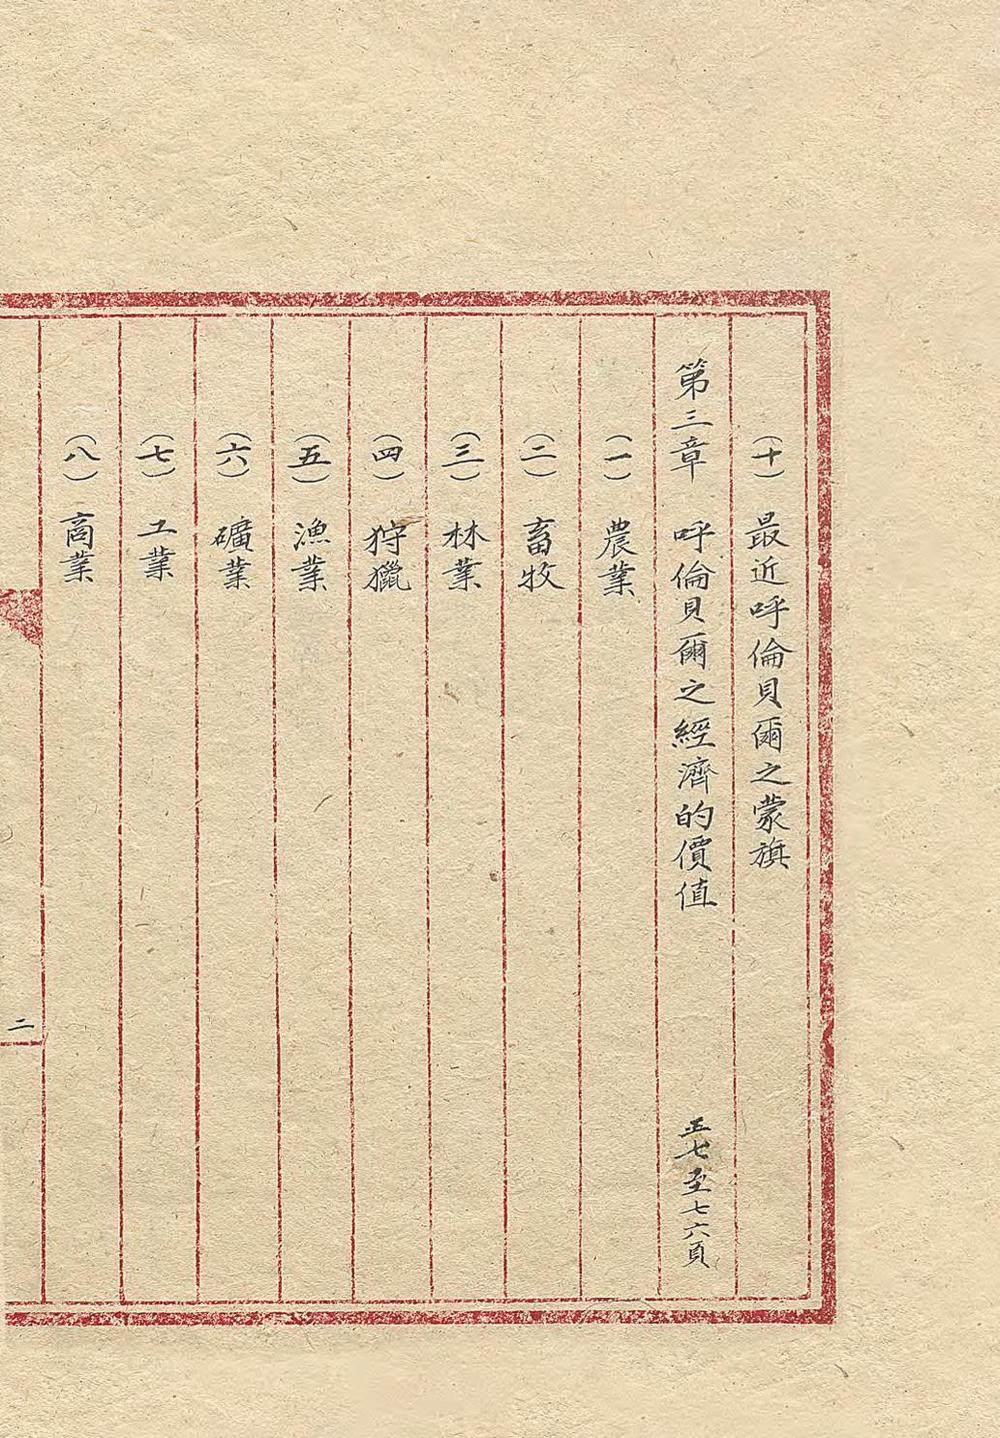 (十) 最近呼倫貝爾之蒙旗
第三章 呼倫貝爾之經濟的價值 五七至七六頁
(一) 農業
(二) 畜牧
(三) 林業
(四) 狩獵
(五) 漁業
(六) 礦業
(七) 工業
(八) 商業
二